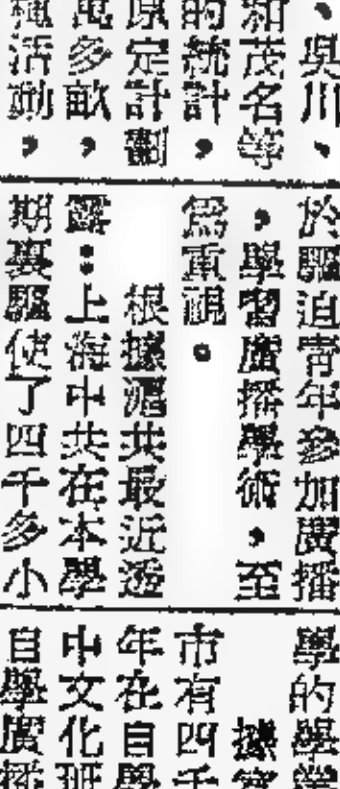 、吳川、
和茂名等
的統計，
原定計劃
萬多畝，
種活動，
於驅迫青年參加廣播
，學習廣播學術，至
爲重視。
根據滬共最近透
露：上海中共在本學
期裏驅使了四千多小
學的學業
據官
市有四千
年在自學
中文化班
自學廣播